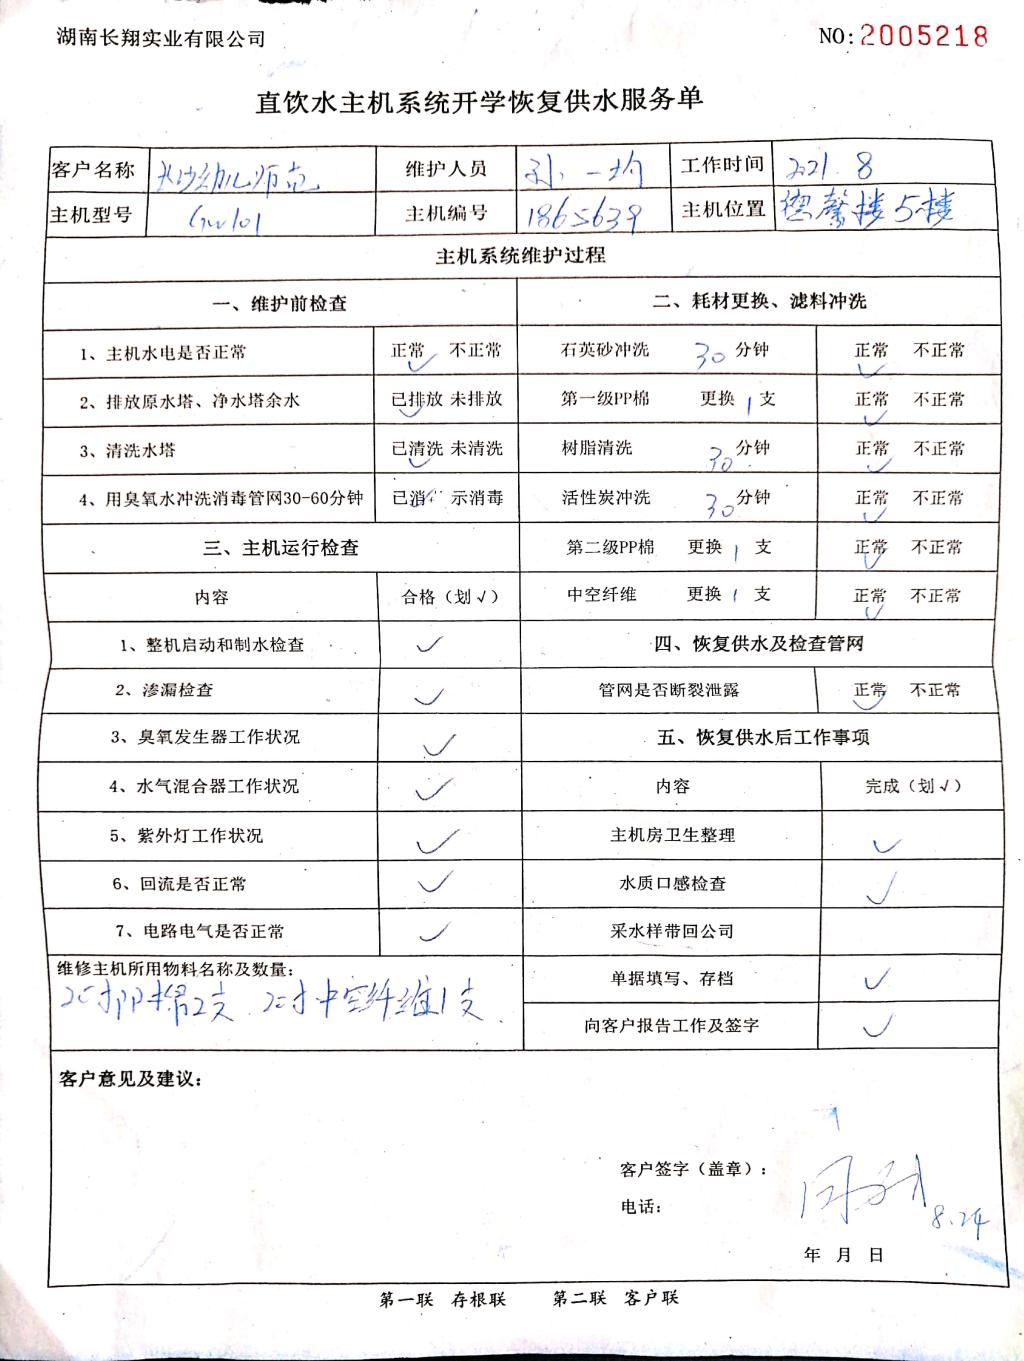 湖南长翔实业有限公司 NO:2005218
直饮水主机系统开学恢复供水服务单
客户名称 长沙幼儿师范 维护人员 孙一均 工作时间 2021.8
主机型号 GW101 主机编号 1865639 主机位置 德馨楼5楼
主机系统维护过程
一、维护前检查 二、耗材更换、滤料冲洗
1、主机水电是否正常 正常✓ 不正常 石英砂冲洗 30分钟 正常✓ 不正常
2、排放原水塔、净水塔余水 已排放✓ 未排放 第一级PP棉 更换1支 正常✓ 不正常
3、清洗水塔 已清洗✓ 未清洗 树脂清洗 30分钟 正常✓ 不正常
4、用臭氧水冲洗消毒管网30-60分钟 已消✓ 示消毒 活性炭冲洗 30分钟 正常✓ 不正常
三、主机运行检查 第二级PP棉 更换1支 正常✓ 不正常
内容 合格（划√） 中空纤维 更换1支 正常✓ 不正常
1、整机启动和制水检查 ✓ 四、恢复供水及检查管网
2、渗漏检查 ✓ 管网是否断裂泄露 正常✓ 不正常
3、臭氧发生器工作状况 ✓ 五、恢复供水后工作事项
4、水气混合器工作状况 ✓ 内容 完成（划√）
5、紫外灯工作状况 ✓ 主机房卫生整理 ✓
6、回流是否正常 ✓ 水质口感检查 ✓
7、电路电气是否正常 ✓ 采水样带回公司
维修主机所用物料名称及数量： 单据填写、存档 ✓
20寸PP棉2支 20寸中空纤维1支 向客户报告工作及签字 ✓
客户意见及建议：
客户签字（盖章）：
电话：
8.24
年 月 日
第一联 存根联 第二联 客户联